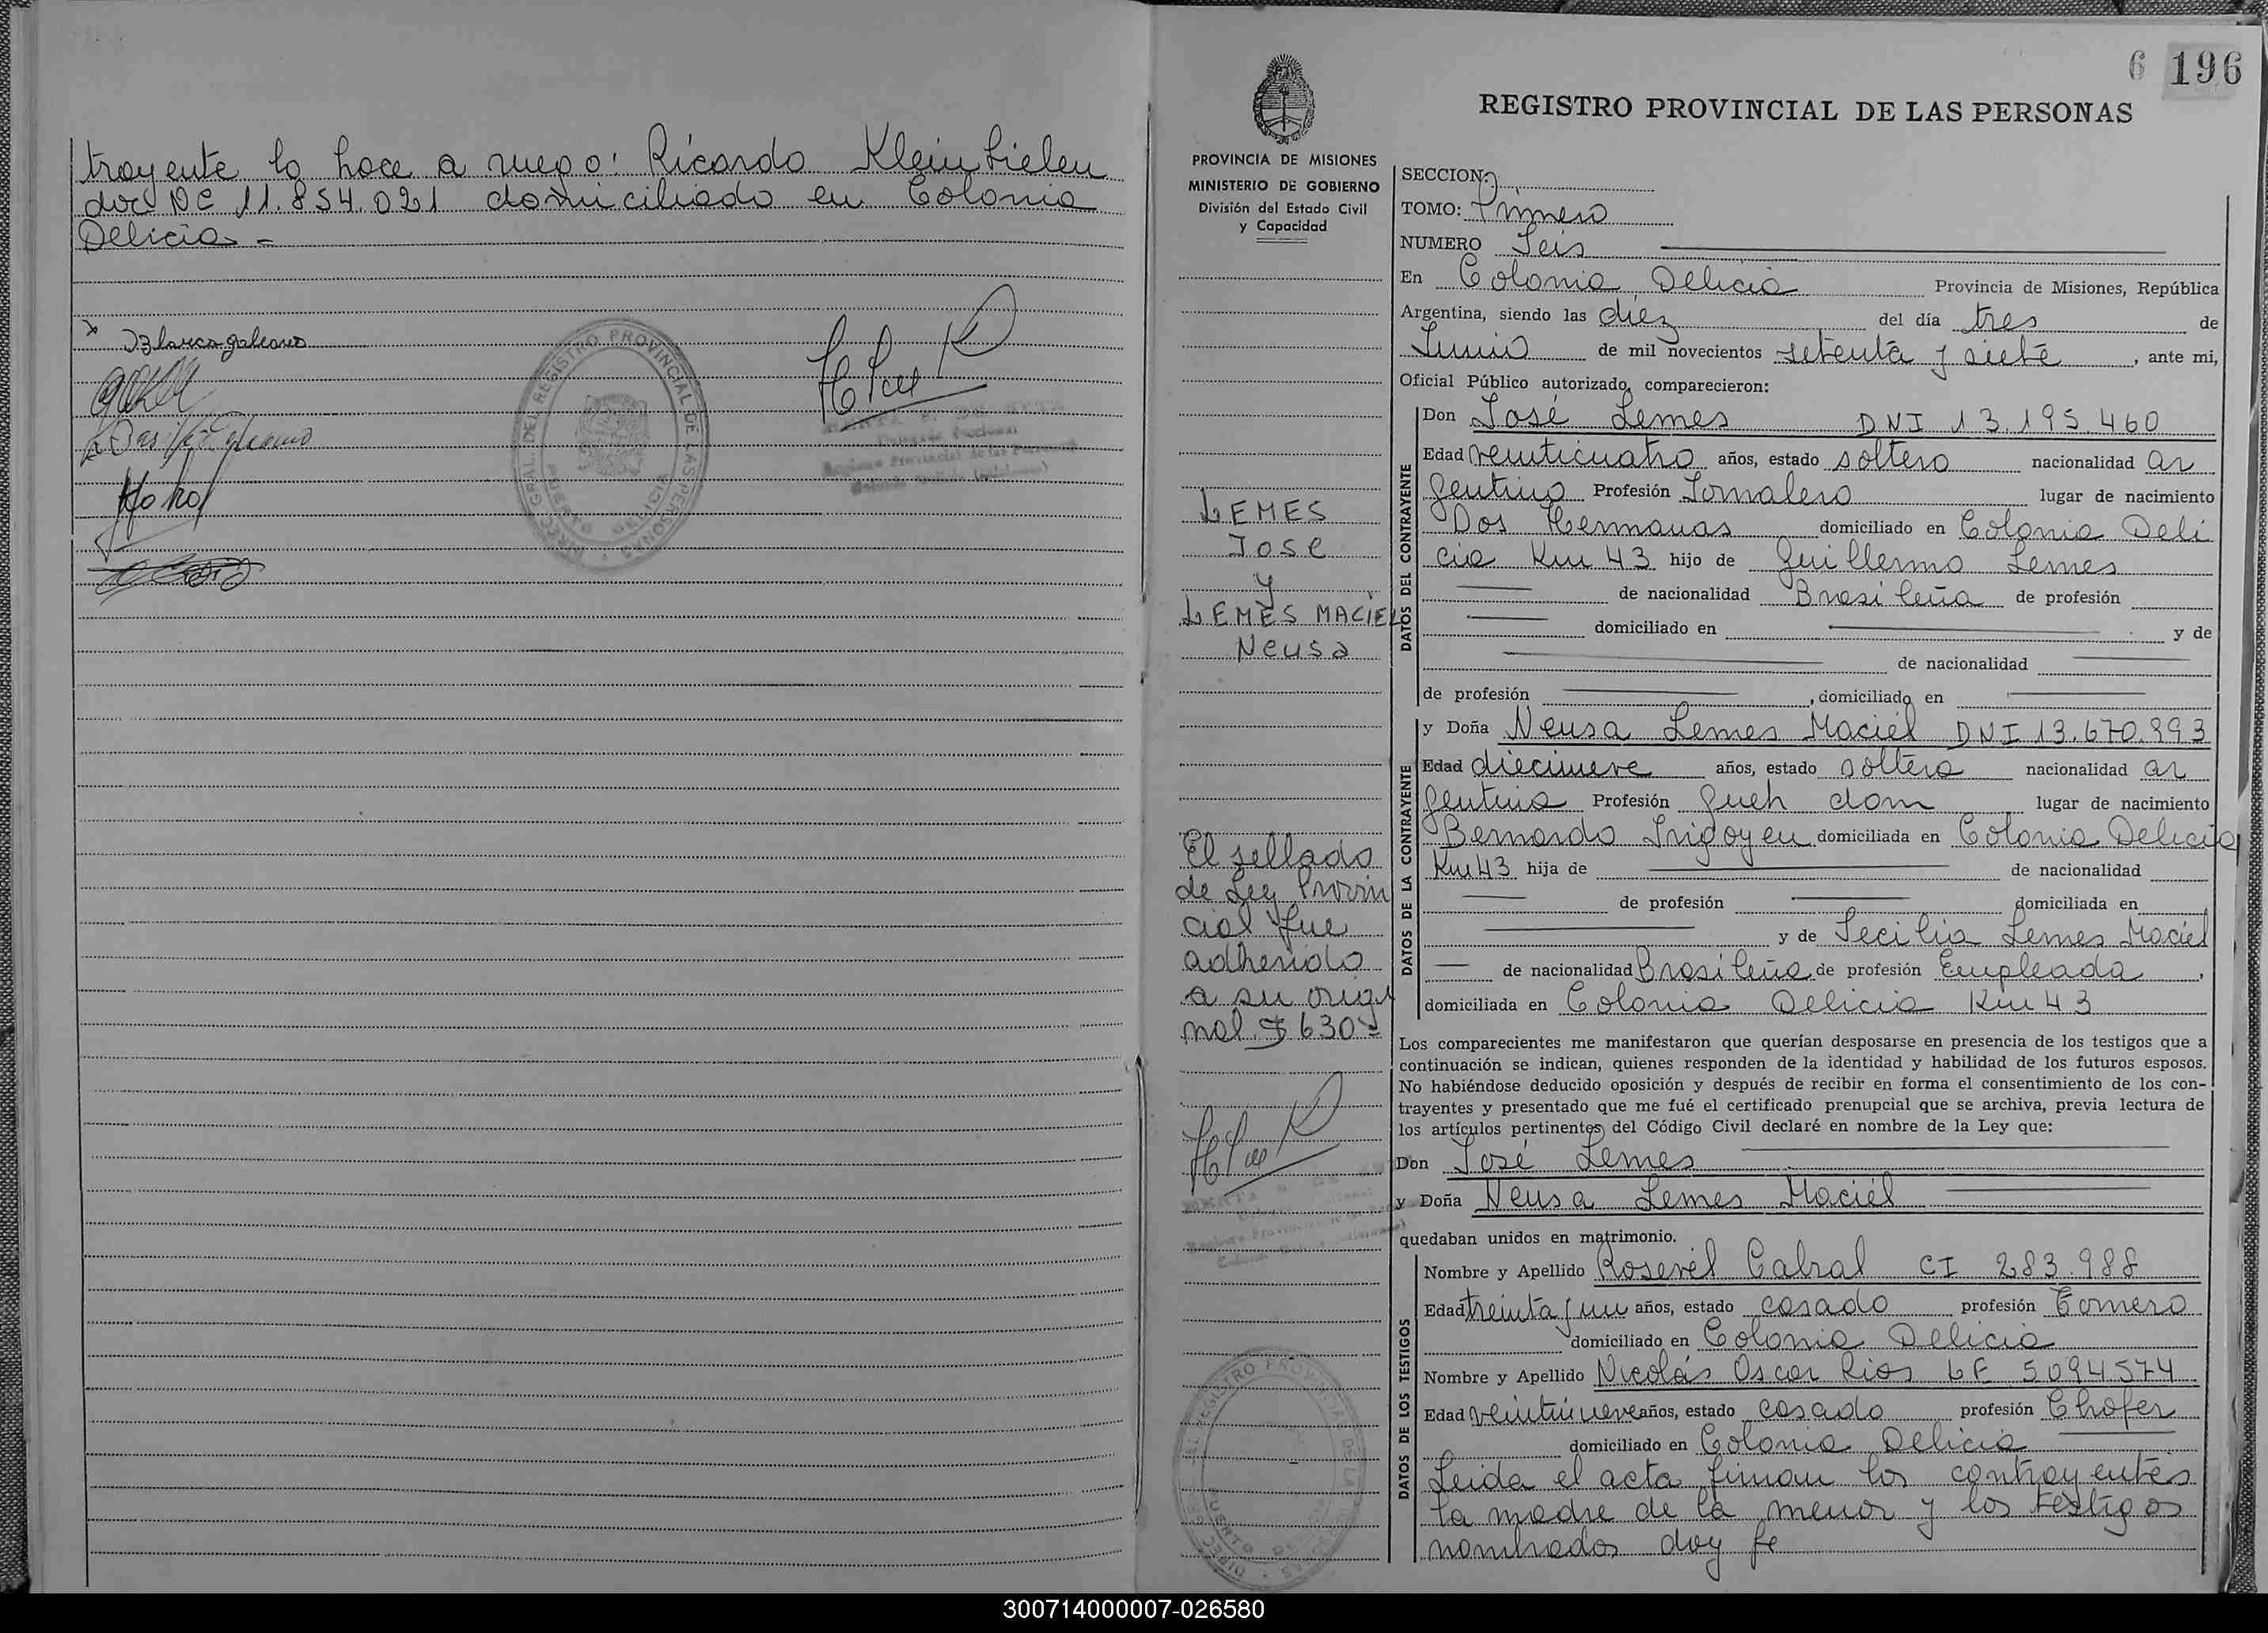 trayente lo hace a ruego: Ricardo Klein
doc NC 11.854.021 domiciliado en Colonia
Delicia -
Blanca galeano
DIREC. GRAL. DEL REGISTRO PROVINCIAL DE LAS PERSONAS
PUERTO DELICIA
6 196
REGISTRO PROVINCIAL DE LAS PERSONAS
PROVINCIA DE MISIONES
MINISTERIO DE GOBIERNO
División del Estado Civil
y Capacidad
LEMES
Jose
y
LEMES MACIEL
Neusa
El sellado
de Ley Provin
cial fue
adherido
a su origi
nal $ 630
SECCION:
TOMO: Primero
NUMERO Seis
En Colonia Delicia Provincia de Misiones, República
Argentina, siendo las diez del día tres de
Junio de mil novecientos setenta y siete, ante mi,
Oficial Público autorizado, comparecieron:
DATOS DEL CONTRAYENTE
Don José Lemes DNI 13.195.460
Edad veinticuatro años, estado soltero nacionalidad ar
gentino Profesión Jornalero lugar de nacimiento
Dos Hermanas domiciliado en Colonia Deli
cia Km 43 hijo de Guillermo Lemes
de nacionalidad Brasileña de profesión
domiciliado en y de
de nacionalidad
de profesión , domiciliado en
DATOS DE LA CONTRAYENTE
y Doña Neusa Lemes Maciel DNI 13.670.993
Edad diecinueve años, estado soltera nacionalidad ar
gentina Profesión Queh dom lugar de nacimiento
Bernardo Irigoyen domiciliada en Colonia Delicia
Km 43 hija de de nacionalidad
de profesión domiciliada en
y de Secilia Lemes Maciel
de nacionalidad Brasileña de profesión Empleada,
domiciliada en Colonia Delicia Km 43
Los comparecientes me manifestaron que querían desposarse en presencia de los testigos que a
continuación se indican, quienes responden de la identidad y habilidad de los futuros esposos.
No habiéndose deducido oposición y después de recibir en forma el consentimiento de los con-
trayentes y presentado que me fué el certificado prenupcial que se archiva, previa lectura de
los artículos pertinentes del Código Civil declaré en nombre de la Ley que:
Don José Lemes
y Doña Neusa Lemes Maciel
quedaban unidos en matrimonio.
DATOS DE LOS TESTIGOS
Nombre y Apellido Rosevel Cabral CI 283.988
Edad treinta y un años, estado casado profesión Tornero
domiciliado en Colonia Delicia
Nombre y Apellido Nicolás Oscar Rios LE 5094574
Edad veintinueve años, estado casado profesión Chofer
domiciliado en Colonia Delicia
Leida el acta firman los contrayentes
la madre de la menor y los testigos
nombrados doy fe
300714000007-026580